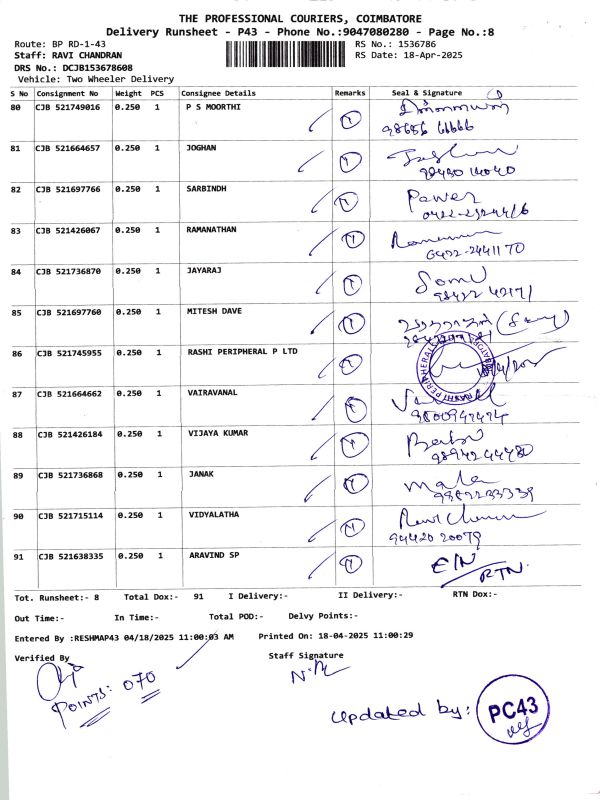 THE PROFESSIONAL COURIERS, COIMBATORE
Delivery Runsheet - P43 - Phone No.:9047080280 - Page No.:8
Route: BP RD-1-43 RS No.: 1536786
Staff: RAVI CHANDRAN RS Date: 18-Apr-2025
DRS No.: DCJB153678608
Vehicle: Two Wheeler Delivery
S No Consignment No Weight PCS Consignee Details Remarks Seal & Signature
80 CJB 521749016 0.250 1 P S MOORTHI
98656 66666
81 CJB 521664657 0.250 1 JOGHAN
82 CJB 521697766 0.250 1 SARBINDH Power
83 CJB 521426067 0.250 1 RAMANATHAN
0422-2441170
84 CJB 521736870 0.250 1 JAYARAJ Somu
98422 42171
85 CJB 521697760 0.250 1 MITESH DAVE
86 CJB 521745955 0.250 1 RASHI PERIPHERAL P LTD
87 CJB 521664662 0.250 1 VAIRAVANAL
88 CJB 521426184 0.250 1 VIJAYA KUMAR
9894244480
89 CJB 521736868 0.250 1 JANAK Mala
90 CJB 521715114 0.250 1 VIDYALATHA
94420 20079
91 CJB 521638335 0.250 1 ARAVIND SP E/N
RTN
Tot. Runsheet:- 8 Total Dox:- 91 I Delivery:- II Delivery:- RTN Dox:-
Out Time:- In Time:- Total POD:- Delvy Points:-
Entered By :RESHMAP43 04/18/2025 11:00:03 AM Printed On: 18-04-2025 11:00:29
Verified By Staff Signature
POINTS: 070
Updated by: PC43